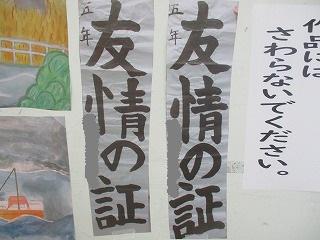 作品には
さわらないでください。
友情の証
五年
友情の証
五年